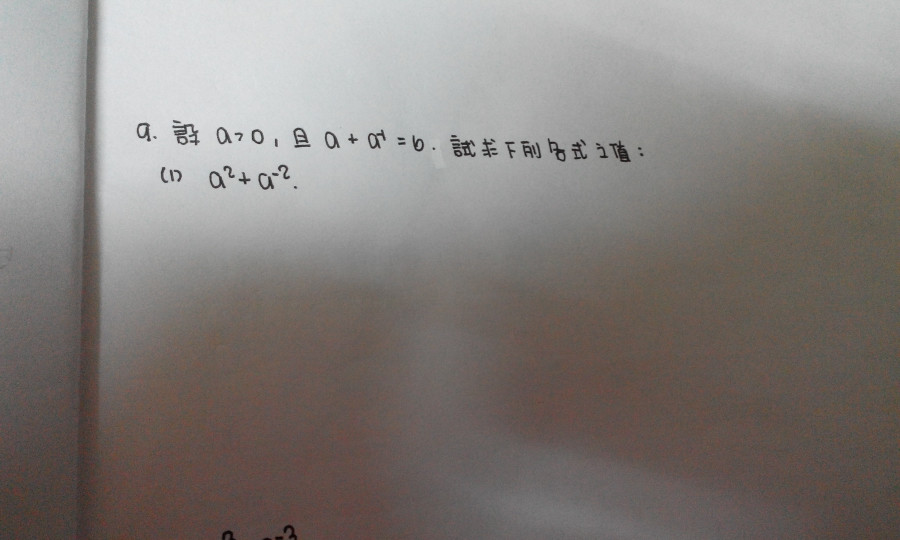 9. 設 a>0，且 a + a⁻¹ = 6．試求下列各式之值：
(1) a² + a⁻².